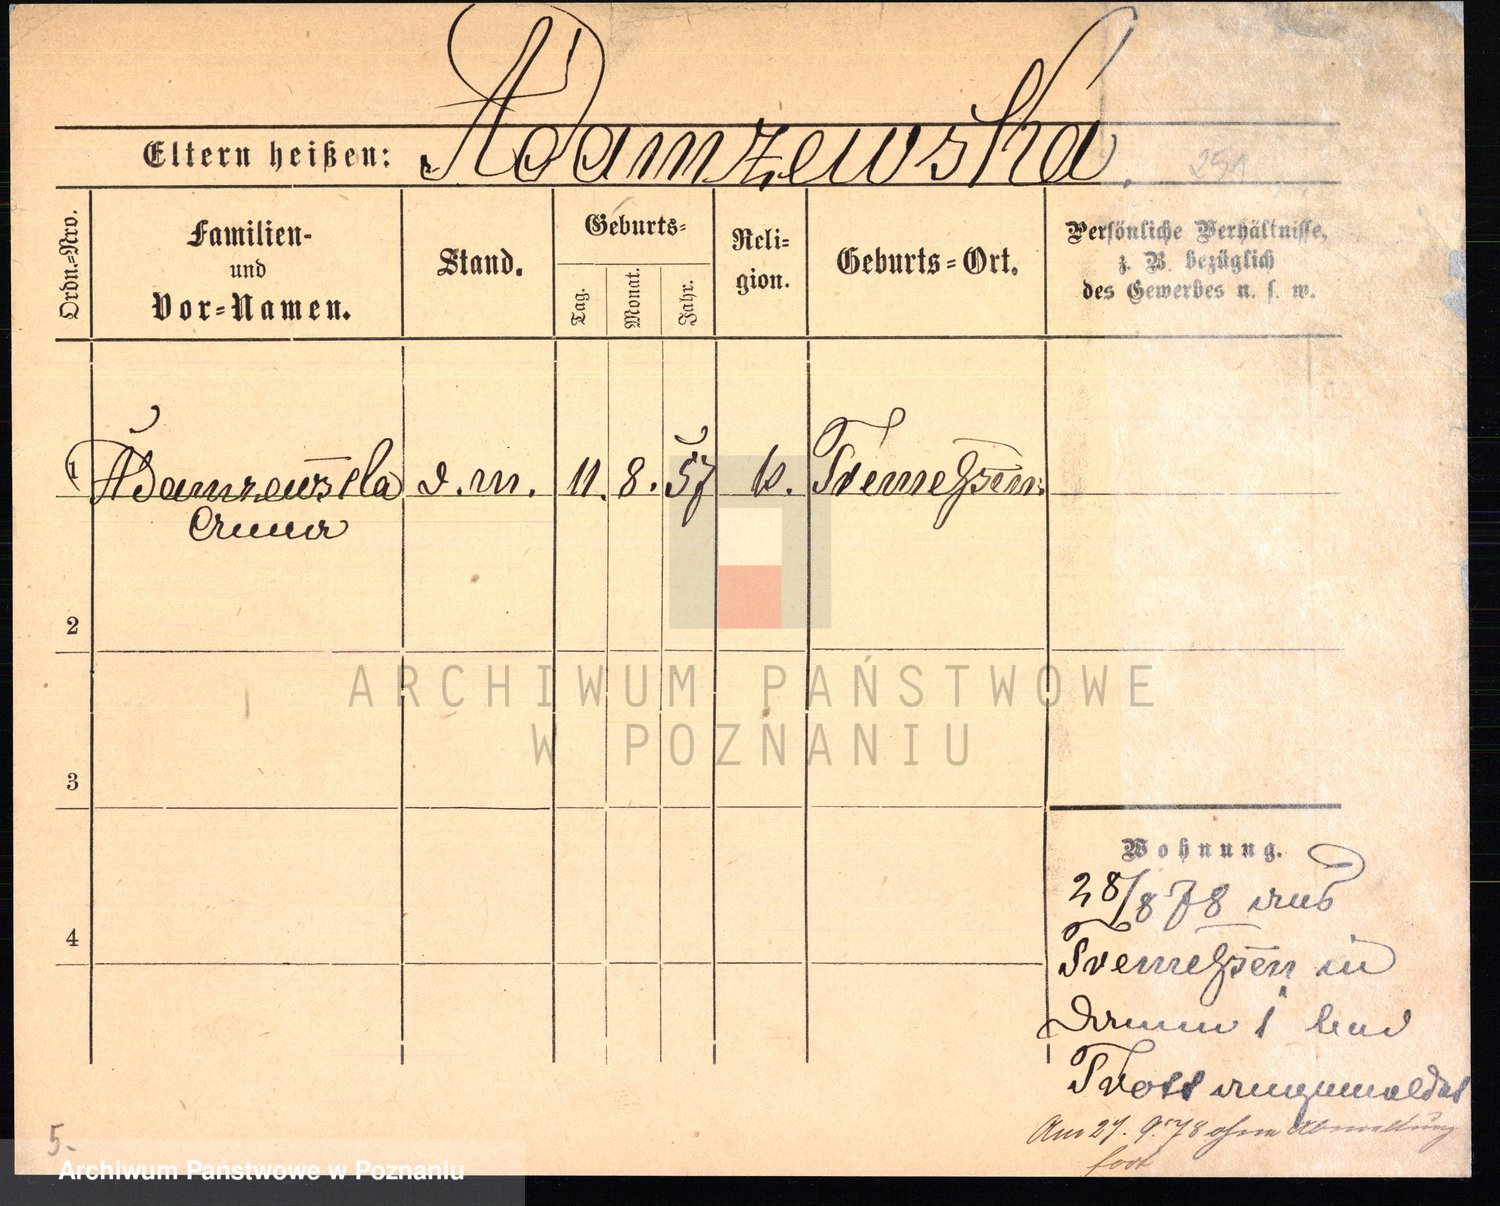 Adamzewska
Eltern heißen:
251
Ordn.-Nro.
Familien-
und
Vor-Namen.
Stand.
Geburts-
Tag.
Monat.
Jahr.
Reli-
gion.
Geburts-Ort.
Persönliche Verhältnisse,
z. B. bezüglich
des Gewerbes u. s. w.
1 Adamzewska d. m. 11. 8. 57 k. Tremeßen
Anna
2
ARCHIWUM PAŃSTWOWE
W POZNANIU
3
Wohnung.
28/8 78 aus
4
Tremeßen in
Damm 1 bei
Tross angemeldet
Am 27. 9. 78 ohne Abmeldung
fort
5.
Archiwum Państwowe w Poznaniu